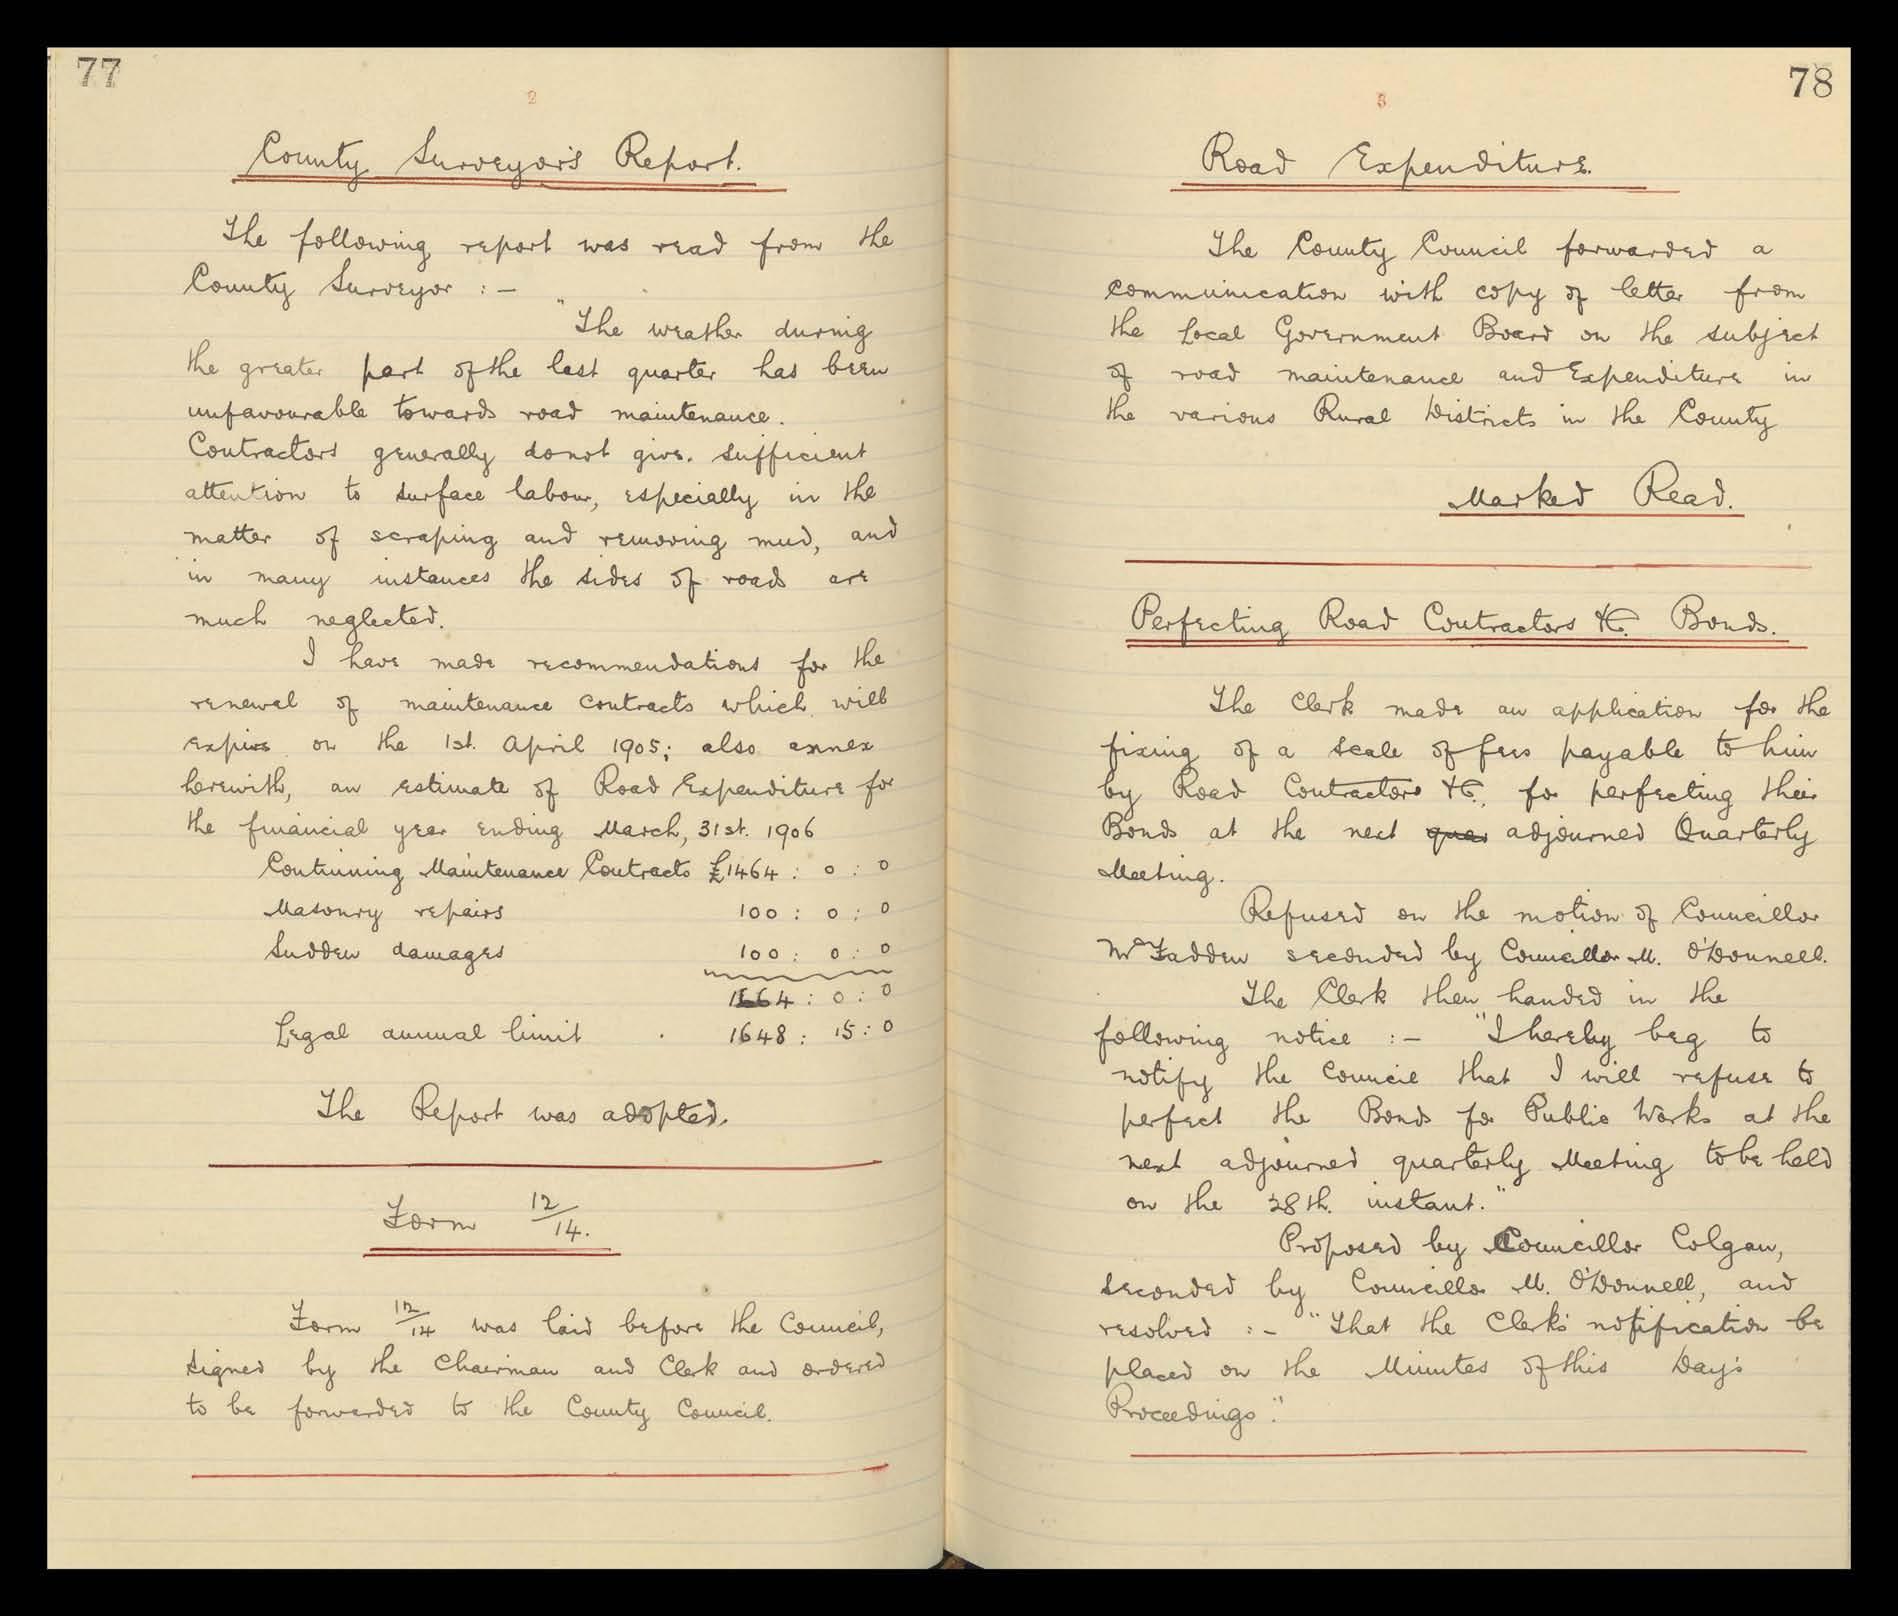 77
2
County Surveyor's Report.
The following report was read from the
County Surveyor : —
"The weather during
the greater part of the last quarter has been
unfavourable towards road maintenance.
Contractors generally do not give sufficient
attention to surface labour, especially in the
matter of scraping and removing mud, and
in many instances the sides of roads are
much neglected.
I have made recommendations for the
renewal of maintenance contracts which will
expire on the 1st. April 1905; also annex
herewith, an estimate of Road Expenditure for
the financial year ending March, 31st. 1906
Continuing Maintenance Contracts £1464 : 0 : 0
Masonry repairs 100 : 0 : 0
Sudden damages 100 : 0 : 0
1664 : 0 : 0
Legal annual limit . 1648 : 15 : 0
The Report was adopted.
Form 12/14.
Form 12/14 was laid before the Council,
signed by the Chairman and Clerk and ordered
to be forwarded to the County Council.
78
3
Road Expenditure.
The County Council forwarded a
communication with copy of letter from
the Local Government Board on the subject
of road maintenance and Expenditure in
the various Rural Districts in the County
Marked Read.
Perfecting Road Contractors &c. Bonds.
The Clerk made an application for the
fixing of a scale of fees payable to him
by Road Contractors &c., for perfecting their
Bonds at the next quar adjourned Quarterly
Meeting.
Refused on the motion of Councillor
McFadden seconded by Councillor M. O'Donnell.
The Clerk then handed in the
following notice : — "I hereby beg to
notify the Council that I will refuse to
perfect the Bonds for Public Works at the
next adjourned quarterly Meeting to be held
on the 28th. instant."
Proposed by Councillor Colgan,
seconded by Councillor M. O'Donnell, and
resolved : — "That the Clerk's notification be
placed on the Minutes of this Day's
Proceedings."